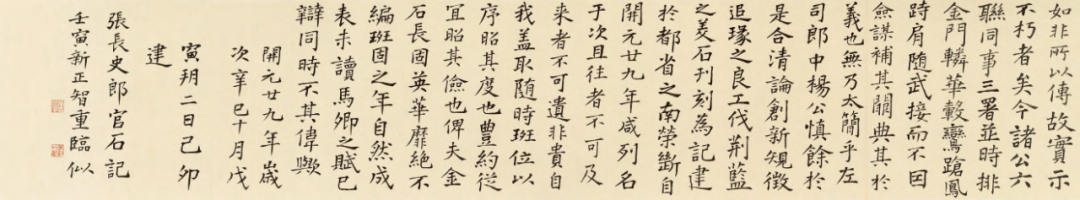 如非所以傳故實示
不朽者矣今諸公六
聯同事三署並時排
金門轔華轂鸞蹌鳳
跱肩隨武接而不因
僉謀補其闕典其於
義也無乃太簡乎左
司郎中楊公慎餘於
是合清論創新規徵
追琢之良工伐荆藍
之美石刊刻為記建
於都省之南榮斷自
開元廿九年咸列名
于次且往者不可及
来者不可遺非貴自
我盖取随時班位以
序昭其度也豊約從
宜昭其儉也俾夫金
石長固英華靡絶不
編班固之年自然成
表未讀馬卿之賦已
辯同時不其偉歟
開元廿九年歳
次辛巳十月戊
寅朔二日己卯
建
張長史郎官石記
壬寅新正智重臨似